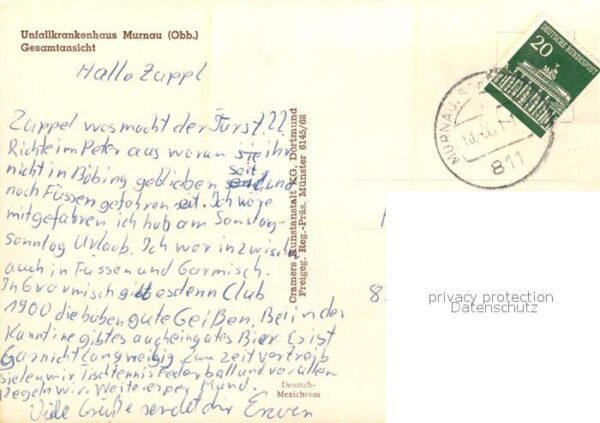 Unfallkrankenhaus Murnau (Obb.)
Gesamtansicht
Hallo Zuppl
Zuppel was macht der Turst !!
Richte im Peter aus warum sie ihr
nicht in Böbing geblieben seit und
nach Füssen gefahren seit. Ich wäre
mitgefahren ich hab am Samstag
sonntag Urlaub. Ich war inzwischen
auch in Füssen und Garmisch.
In Grarmisch gibt es denn Club
1900 die haben gute Geißen. Bei in der
Kanntine gibt es auch ein gutes Bier. Es ist
Garnicht langweilig zum zeitvertreib
sielen wir Tischtennis Federball und vor allen
Kegeln wir. Weiteres per Mund.
Viele Grüße sendet dir Erwin
Cramers Kunstanstalt KG, Dortmund
Freigeg. Reg.-Präs. Münster 6145/68
Deutsch-
Mexichrom
20
DEUTSCHE BUNDESPOST
MURNAU
811
8
privacy protection
Datenschutz